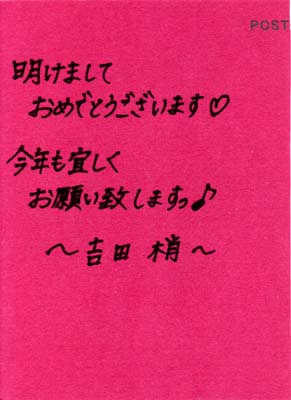 POST
明けまして
おめでとうございます♡
今年も宜しく
お願い致しますっ♪
～吉田 梢～